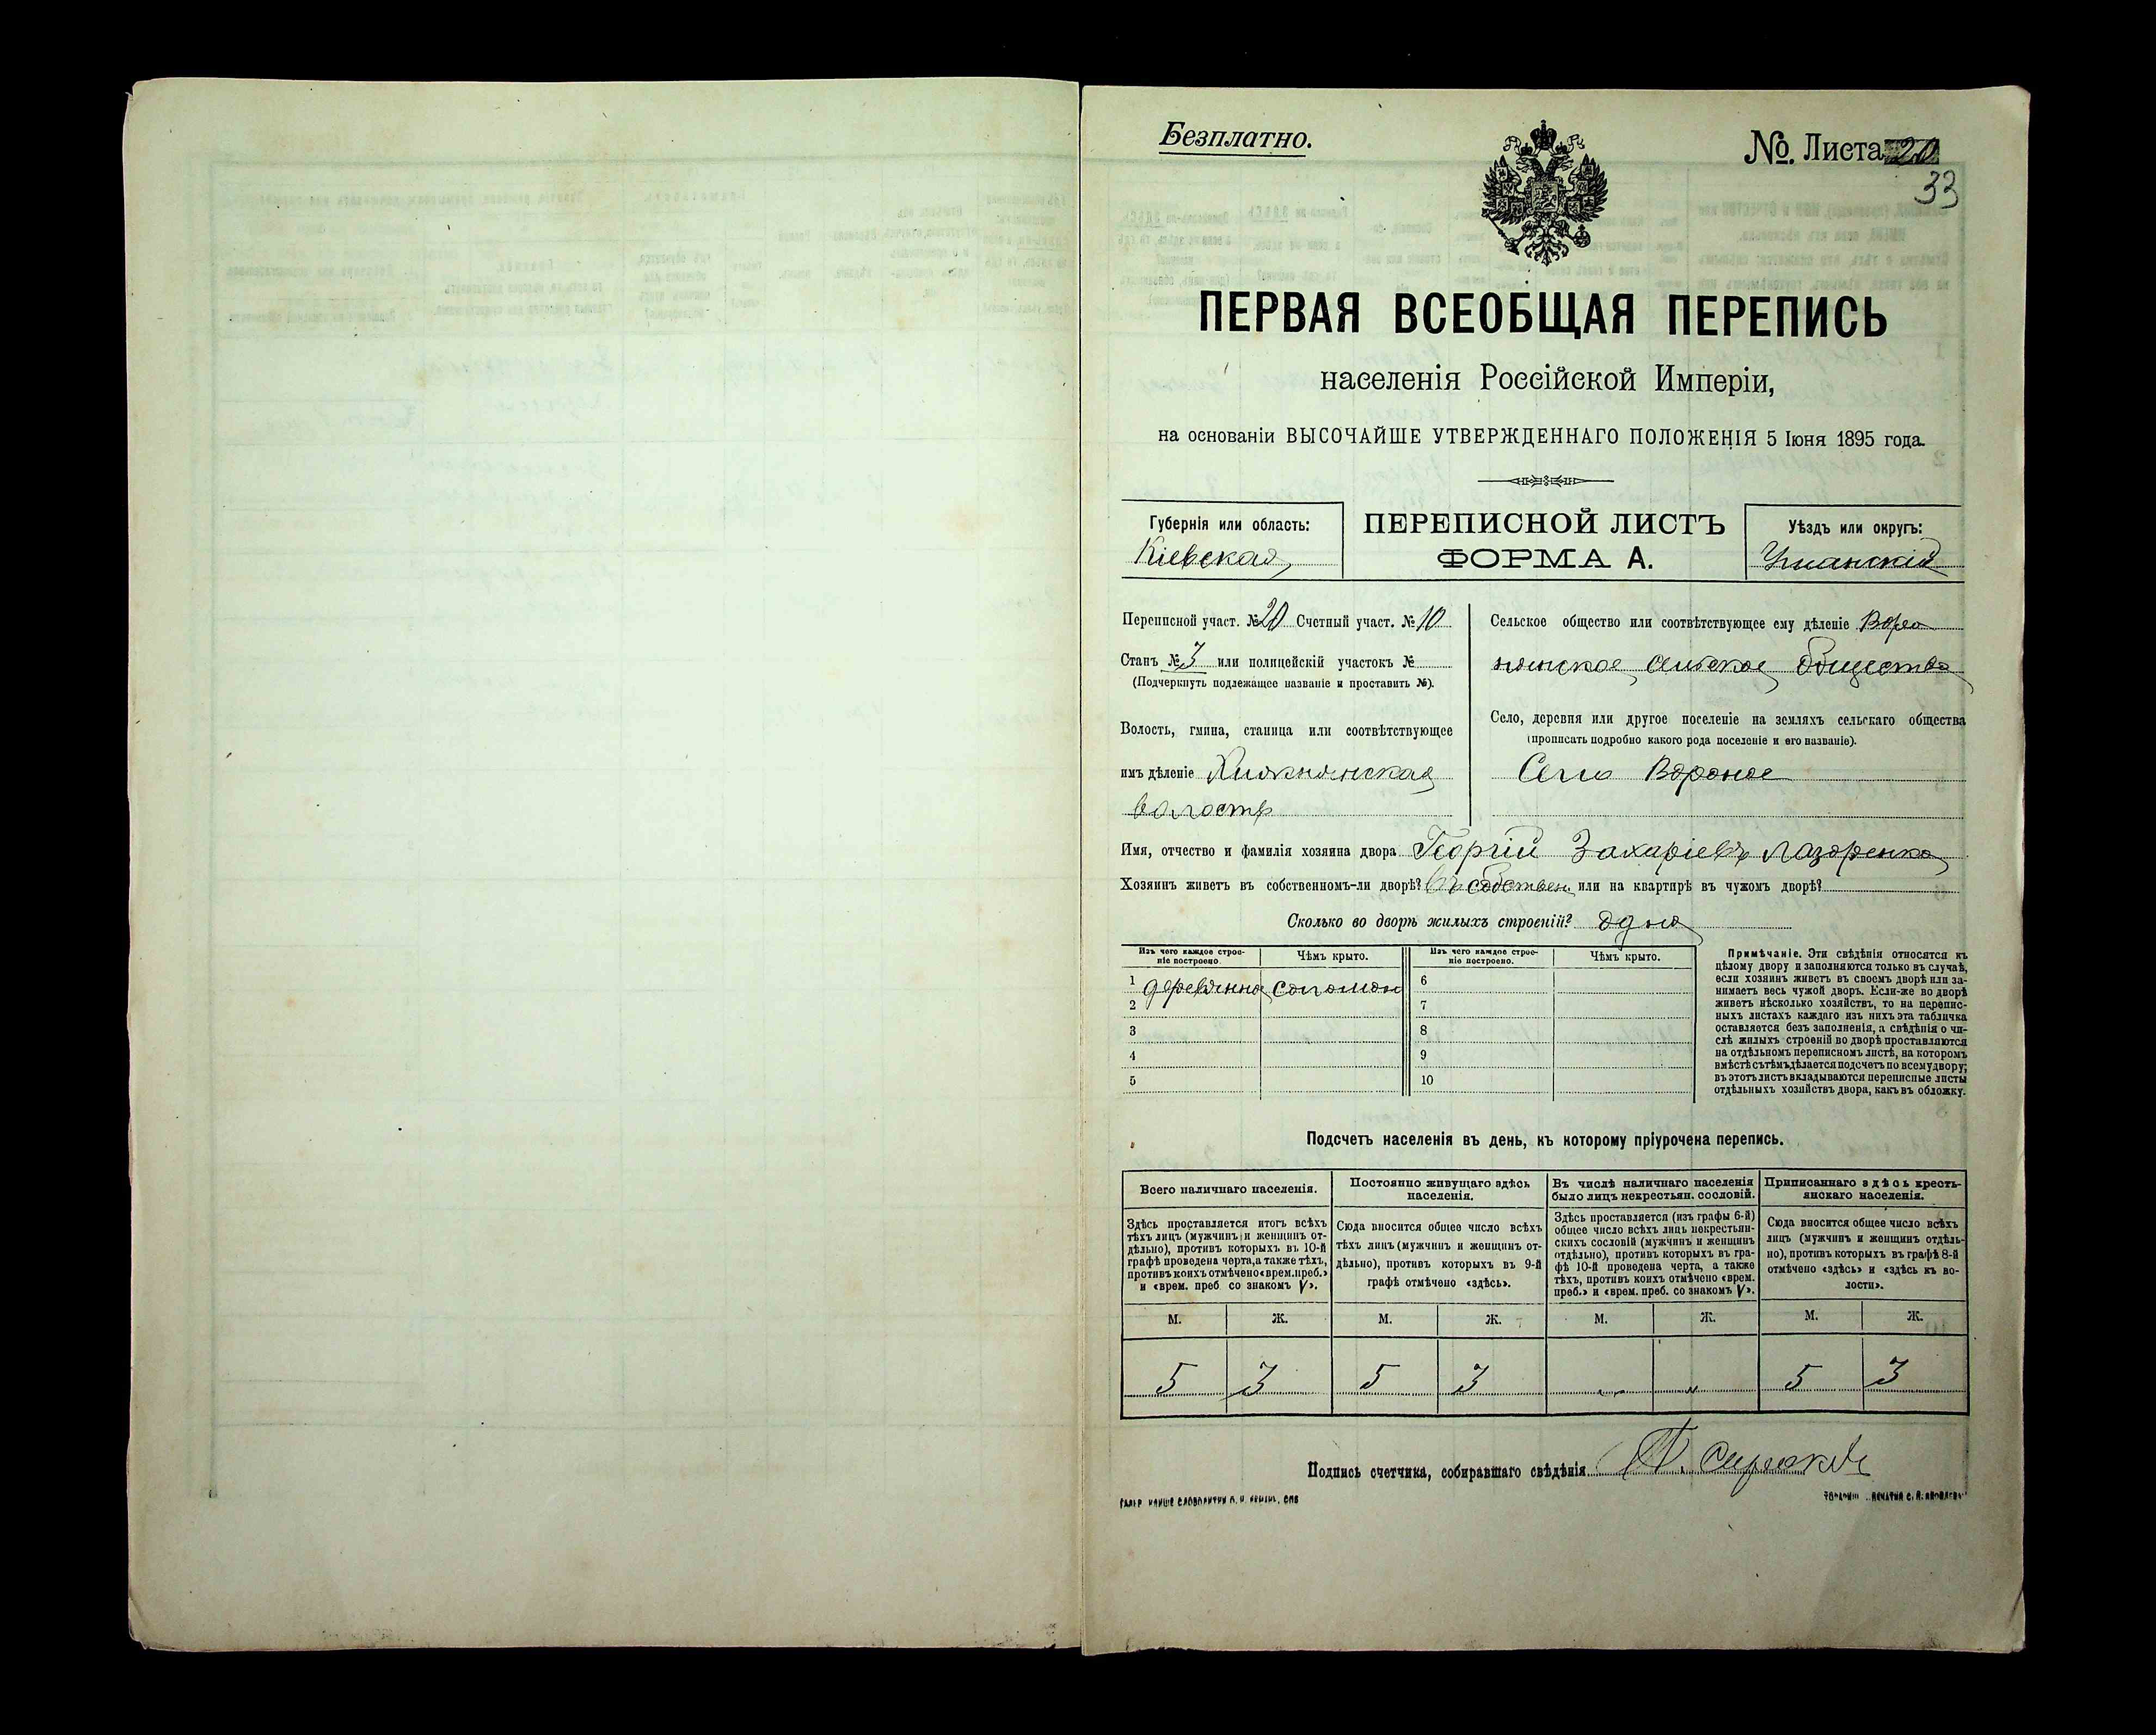 Безплатно.
№. Листа 20
33
ПЕРВАЯ ВСЕОБЩАЯ ПЕРЕПИСЬ
населенія Россійской Имперіи,
на основаніи ВЫСОЧАЙШЕ УТВЕРЖДЕННАГО ПОЛОЖЕНІЯ 5 Іюня 1895 года.
Губернія или область:
Кіевская
ПЕРЕПИСНОЙ ЛИСТЪ
ФОРМА А.
Уѣздъ или округъ:
Уманскій
Переписной участ. № 20 Счетный участ. № 10
Станъ № 3 или полицейскій участокъ №
(Подчеркнуть подлежащее названіе и проставить №).
Волость, гмина, станица или соотвѣтствующее
имъ дѣленіе Княжнянская
волость
Сельское общество или соотвѣтствующее ему дѣленіе Воро
нянское сельское общество
Село, деревня или другое поселеніе на земляхъ сельскаго общества
(прописать подробно какого рода поселеніе и его названіе).
Село Вороное
Имя, отчество и фамилія хозяина двора Георгій Захаріевъ Лазоренко
Хозяинъ живетъ въ собственномъ-ли дворѣ? Въ собствен. или на квартирѣ въ чужомъ дворѣ?
Сколько во дворѣ жилыхъ строеній? одно
Изъ чего каждое строе-
ніе построено.
Чѣмъ крыто.
Изъ чего каждое строе-
ніе построено.
Чѣмъ крыто.
1 деревянно соломой 6
2 7
3 8
4 9
5 10
Примѣчаніе. Эти свѣдѣнія относятся къ
цѣлому двору и заполняются только въ случаѣ,
если хозяинъ живетъ въ своемъ дворѣ или за-
нимаетъ весь чужой дворъ. Если-же во дворѣ
живетъ нѣсколько хозяйствъ, то на перепис-
ныхъ листахъ каждаго изъ нихъ эта табличка
оставляется безъ заполненія, а свѣдѣнія о чи-
слѣ жилыхъ строеній во дворѣ проставляются
на отдѣльномъ переписномъ листѣ, на которомъ
вмѣстѣ съ тѣмъ дѣлается подсчетъ по всему двору;
въ этотъ листъ вкладываются переписные листы
отдѣльныхъ хозяйствъ двора, какъ въ обложку.
Подсчетъ населенія въ день, къ которому пріурочена перепись.
Всего наличнаго населенія.
Здѣсь проставляется итогъ всѣхъ
тѣхъ лицъ (мужчинъ и женщинъ от-
дѣльно), противъ которыхъ въ 10-й
графѣ проведена черта, а также тѣхъ,
противъ коихъ отмѣчено «врем. преб.»
и «врем. преб. со знакомъ V».
Постоянно живущаго здѣсь
населенія.
Сюда вносится общее число всѣхъ
тѣхъ лицъ (мужчинъ и женщинъ от-
дѣльно), противъ которыхъ въ 9-й
графѣ отмѣчено «здѣсь».
Въ числѣ наличнаго населенія
было лицъ некрестьян. сословій.
Здѣсь проставляется (изъ графы 6-й)
общее число всѣхъ лицъ некрестьян-
скихъ сословій (мужчинъ и женщинъ
отдѣльно), противъ которыхъ въ гра-
фѣ 10-й проведена черта, а также
тѣхъ, противъ коихъ отмѣчено «врем.
преб.» и «врем. преб. со знакомъ V».
Приписаннаго здѣсь кресть-
янскаго населенія.
Сюда вносится общее число всѣхъ
лицъ (мужчинъ и женщинъ отдѣль-
но), противъ которыхъ въ графѣ 8-й
отмѣчено «здѣсь» и «здѣсь къ во-
лости».
М. Ж. М. Ж. М. Ж. М. Ж.
5 3 5 3 „ „ 5 3
Подпись счетчика, собиравшаго свѣдѣнія